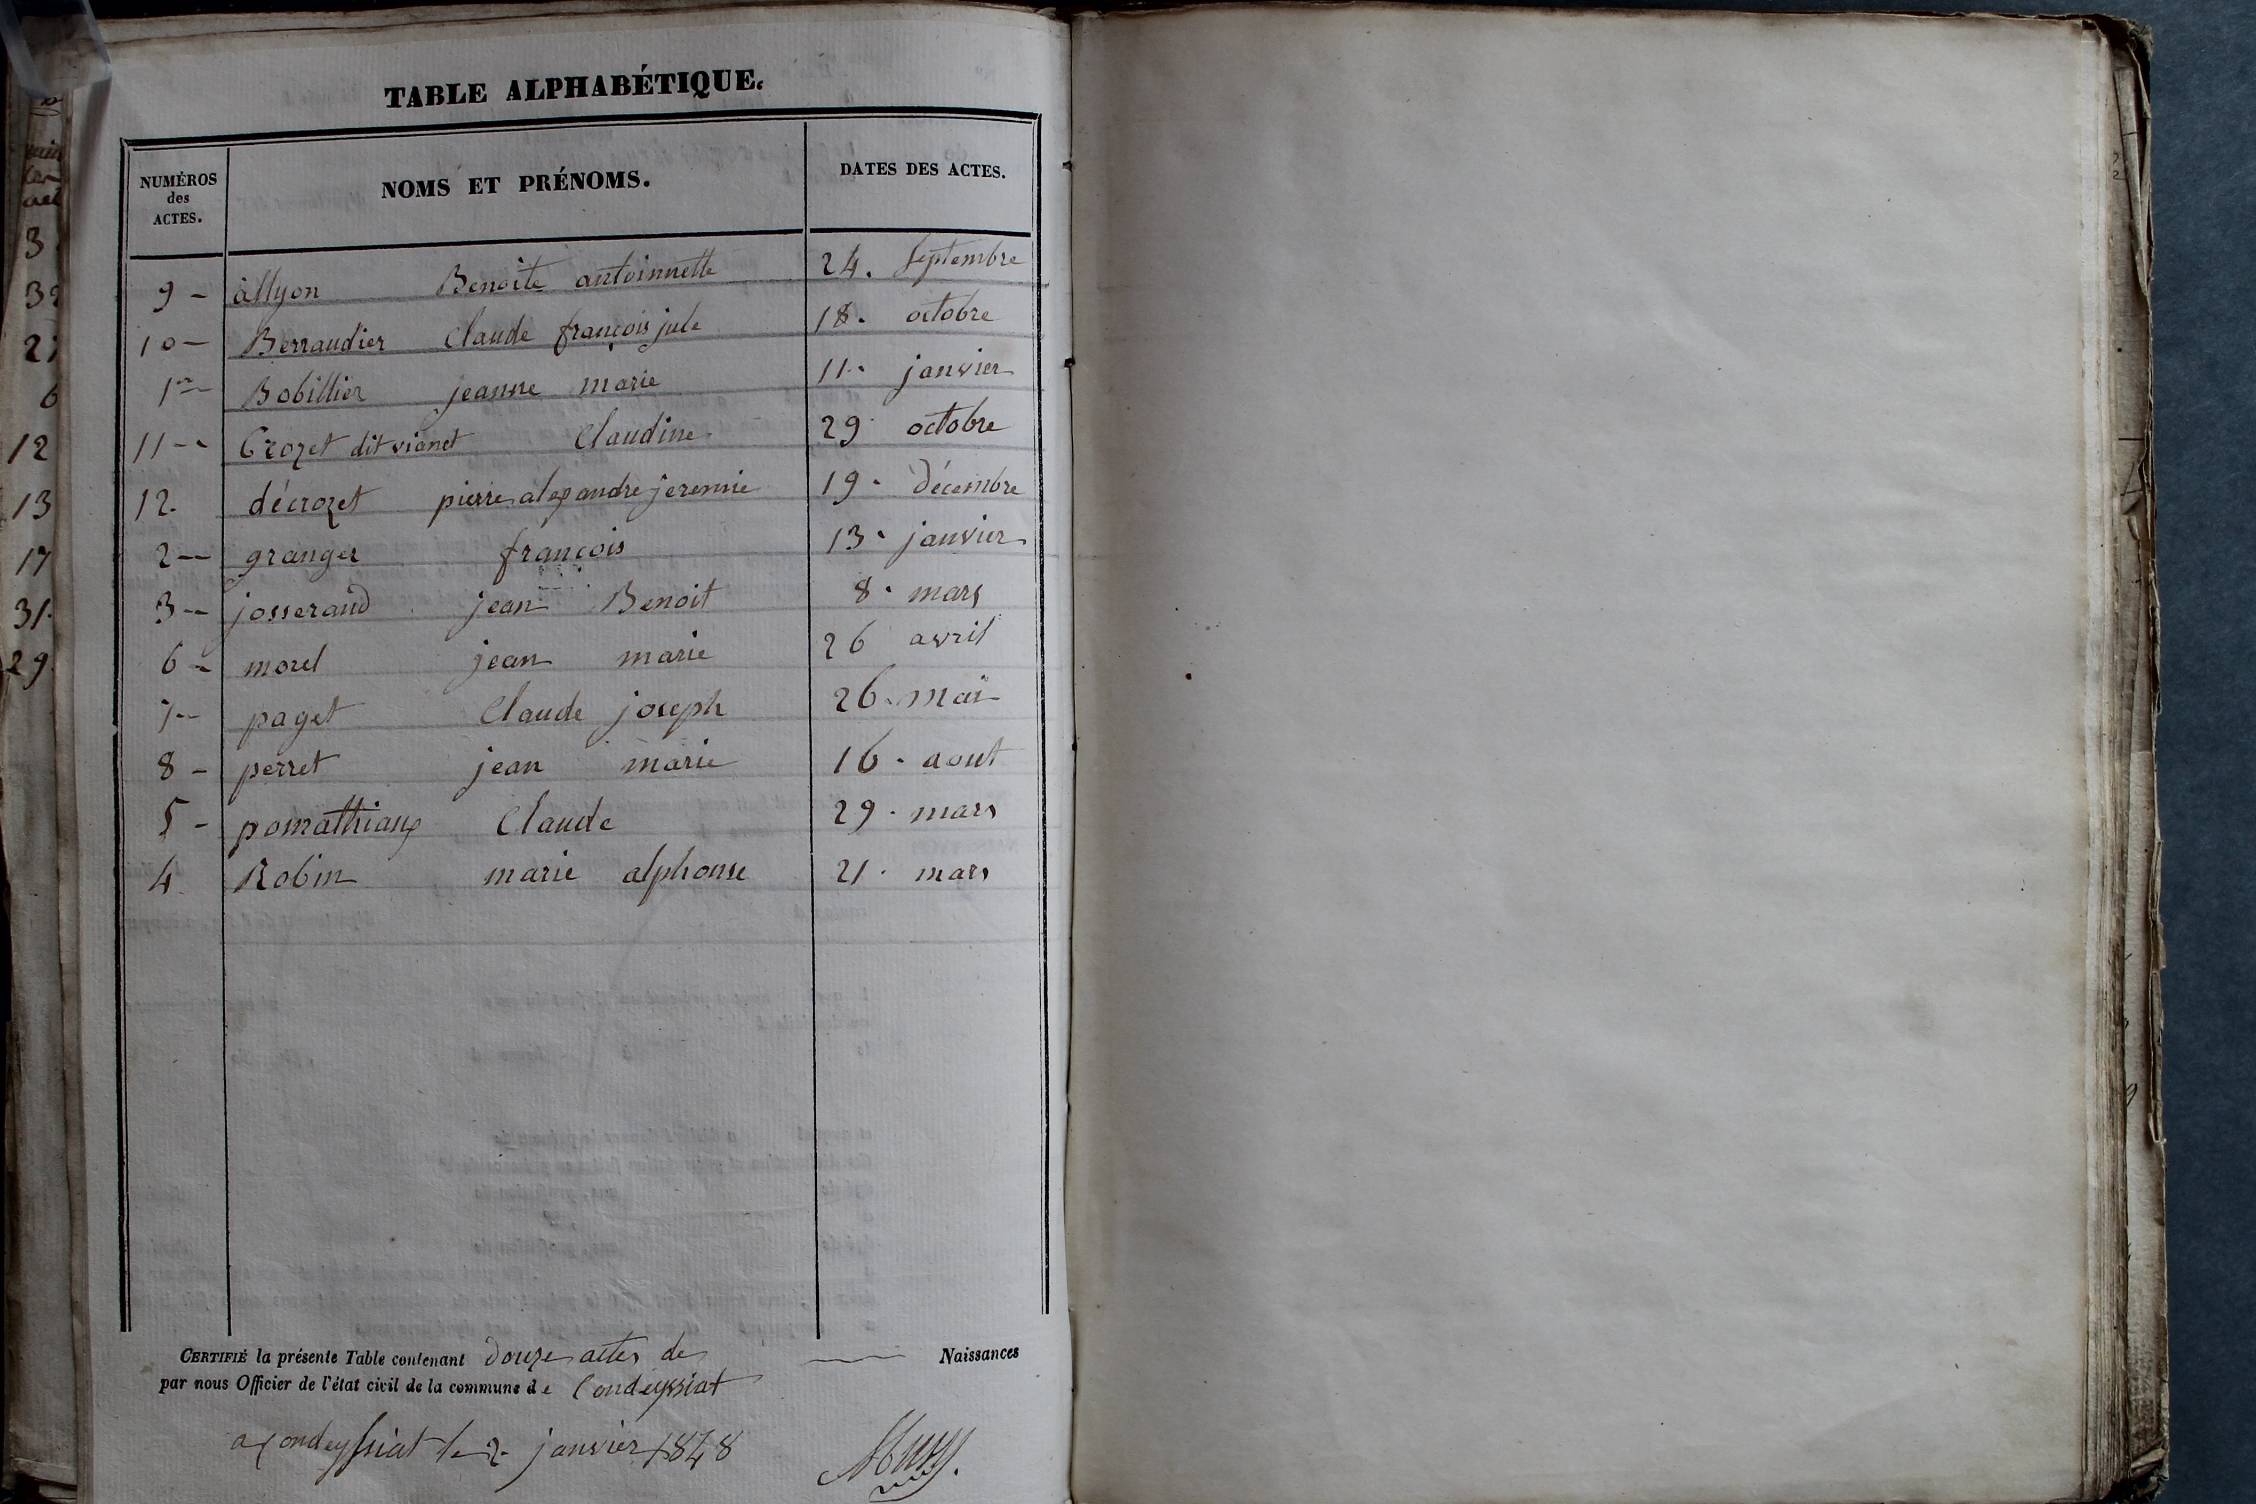 TABLE ALPHABÉTIQUE.
NUMÉROS des ACTES. NOMS ET PRÉNOMS. DATES DES ACTES.
9 - allyon Benoite antoinnette 24. Septembre
10 - Berraudier Claude françois jule 18. octobre
1er - Bobillier jeanne marie 11. janvier
11 - Crozet dit vianet Claudine 29 octobre
12. décrozet pierre alexandre jeremie 19. décembre
2 - granger françois 13. janvier
3 - josserand jean Benoit 8. mars
6 - morel jean marie 26 avril
7 - paget Claude joseph 26. mai
8 - perret jean marie 16. aout
5 - pomathiaux Claude 29. mars
4 Robin marie alphonse 21. mars
CERTIFIÉ la présente Table contenant douze actes de Naissances
par nous Officier de l'état civil de la commune de Condeyssiat
a Condeyssiat le 2 janvier 1848
3
12
13
17
31.
29.